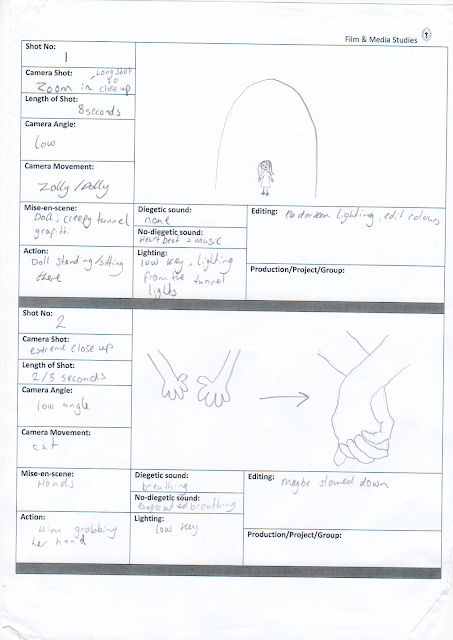 Film & Media Studies
Shot No:
1
Camera Shot: Long shot
to
Zoom in close up
Length of Shot:
8 seconds
Camera Angle:
low
Camera Movement:
Zolly / Dolly
Mise-en-scene:
Doll, creepy tunnel
grafitti
Action:
Doll standing/sitting
there
Diegetic sound:
none
No-diegetic sound:
Heart Beat + music
Lighting:
low key, lighting
from the tunnel
lights
Editing: darken lighting, edit colours
Production/Project/Group:
Shot No:
2
Camera Shot:
extreme close up
Length of Shot:
2/3 seconds
Camera Angle:
low angle
Camera Movement:
cut
Mise-en-scene:
Hands
Action:
Him grabbing
her hand
Diegetic sound:
breathing
No-diegetic sound:
breathing
Lighting:
low key
Editing:
Maybe slowed down
Production/Project/Group: